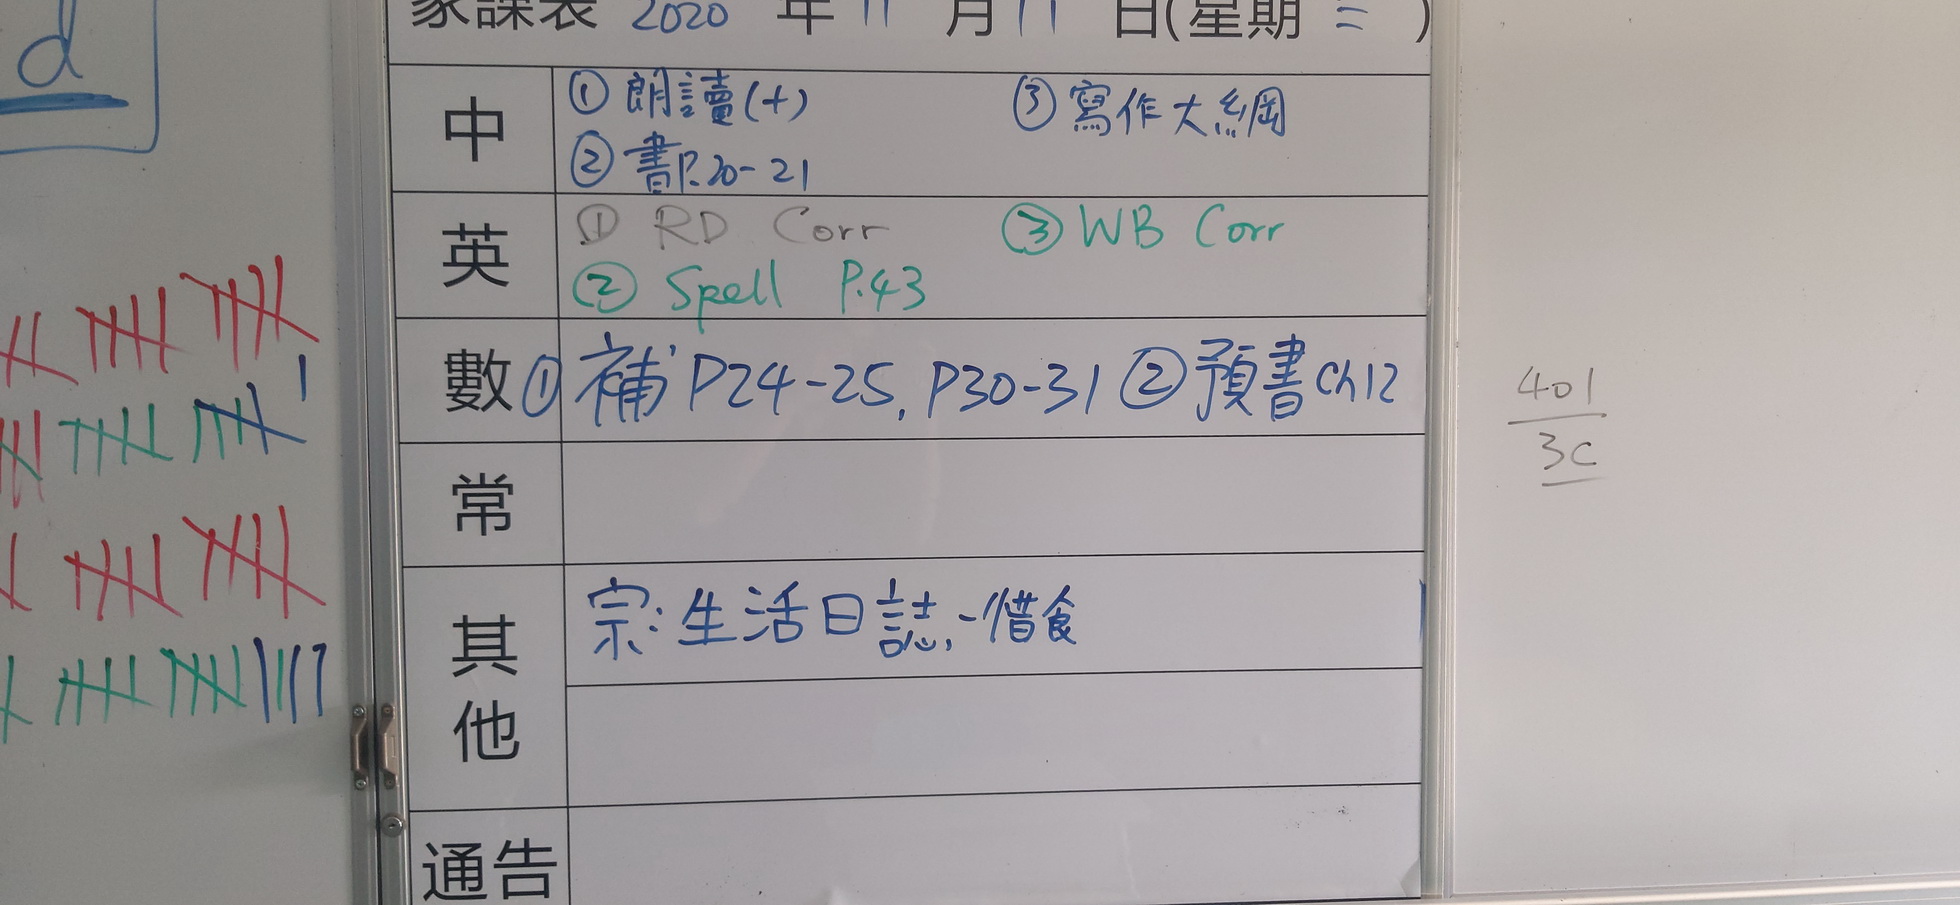 d
家課表 2020 年 11 月 11 日(星期三)
中 ① 朗讀(十) ③ 寫作大綱
② 書P.20-21
英 ① RD Corr ③ WB Corr
② Spell P.43
數 ① 補 P24-25, P30-31 ② 預書 Ch12
常
其他 宗: 生活日誌-惜食
通告
401
3C